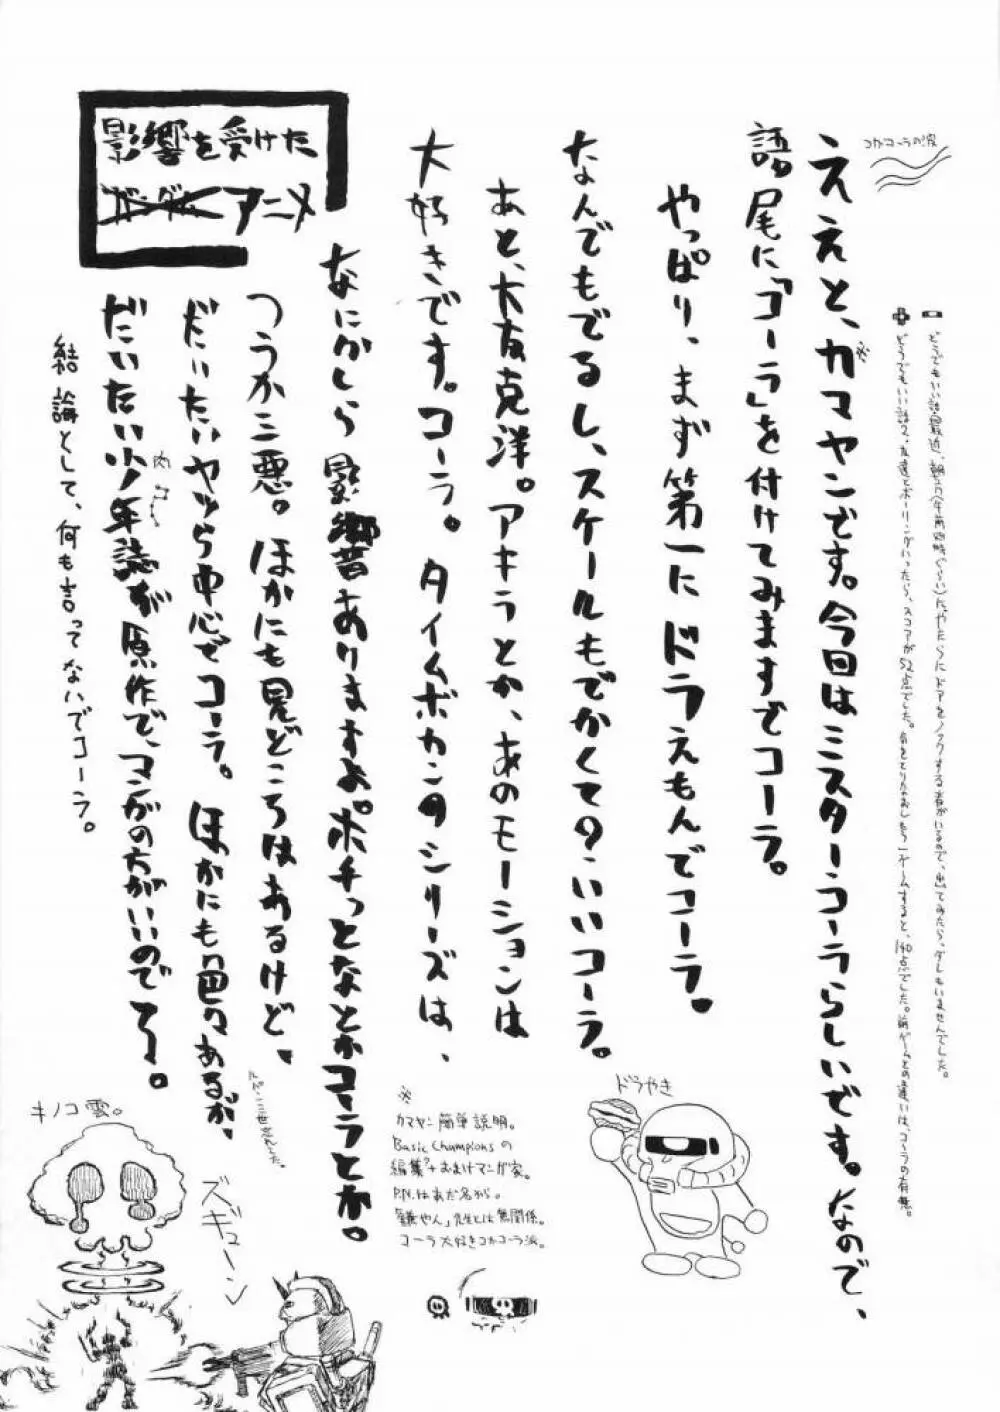 影響を受けた
ガンダム アニメ
コカコーラの波
どうでもいい話、最近、朝方(午前四時ぐらい)にやたらにドアをノックする者がいるので、出てみたら、ダレもいませんでした。
どうでもいい話2、友達とボーリングいったら、スコアが52点でした。「ゲームすると、140点でした。前ゲームとの違いは、コーラの有無。
ええと、ガマヤンです。今回はミスターコーラらしいです。なので、
語尾に「コーラ」を付けてみますでコーラ。
やっぱり、まず第一にドラえもんでコーラ。
なんでもでるし、スケールもでかくて?、いいコーラ。
あと、大友克洋。アキラとか、あのモーションは
大好きです。コーラ。タイムボカンのシリーズは、
なにかしら影響ありますよ。ポチっとなとかコーラとか。
つうか三悪。ほかにも見どころはあるけど、
ドだいたいヤツら中心でコーラ。ほかにも色々あるが、
ルパン三世忘れてた。
だいたい少年誌が原作で、マンガの方がいいのでてー。
結論として、何も言ってないでコーラ。
※
カマヤン簡単説明。
Basic Championsの
編集?+おまけマンガ家。
P.N.はあだ名から。
「鎌やん」先生とは無関係。
コーラ大好きコカコーラ派。
ドラやき
キノコ雲。
ズギューン